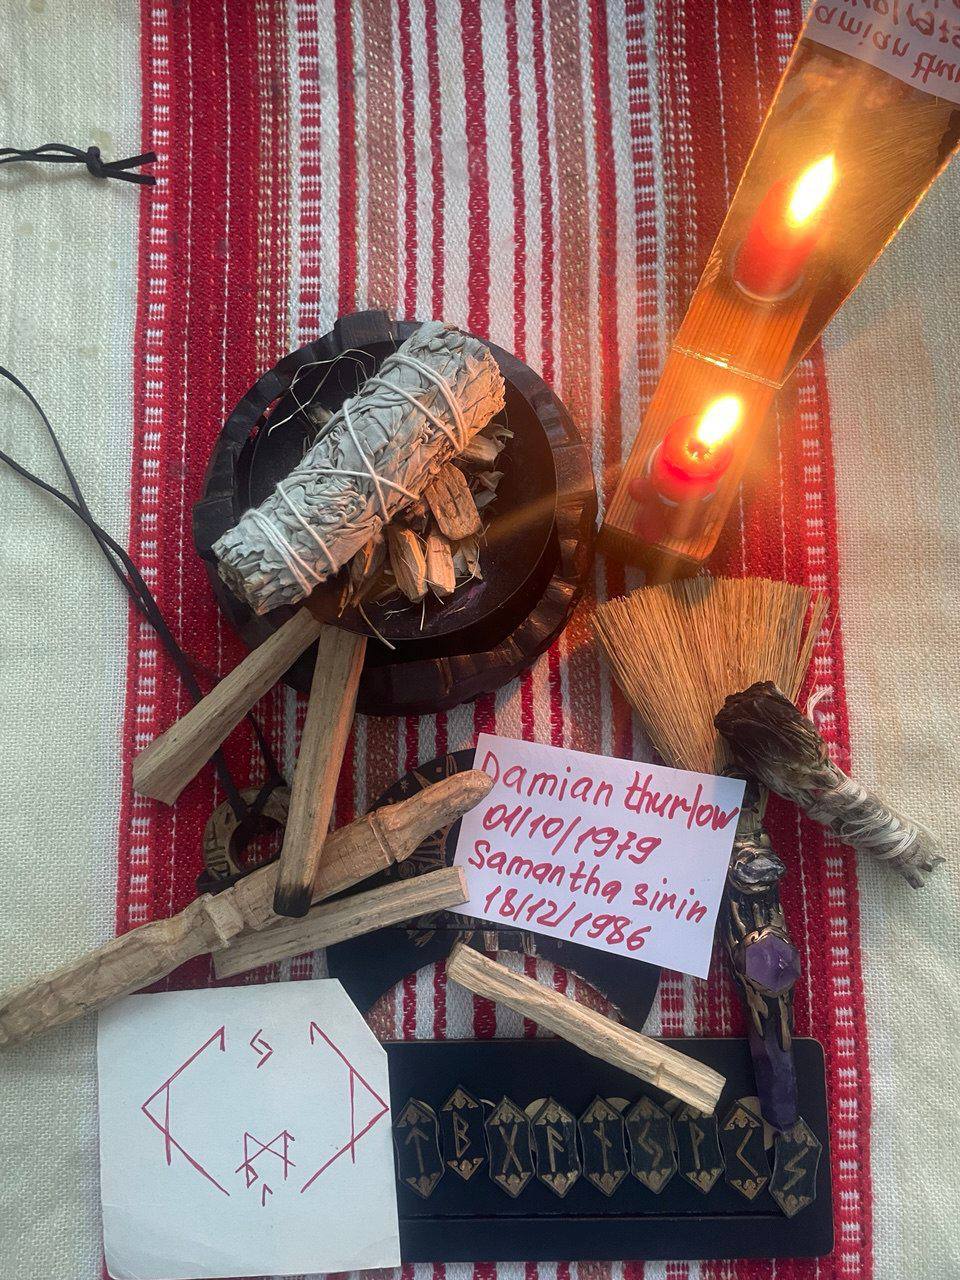 Damian thurlow
01/10/1979
Samantha sirin
18/12/1986